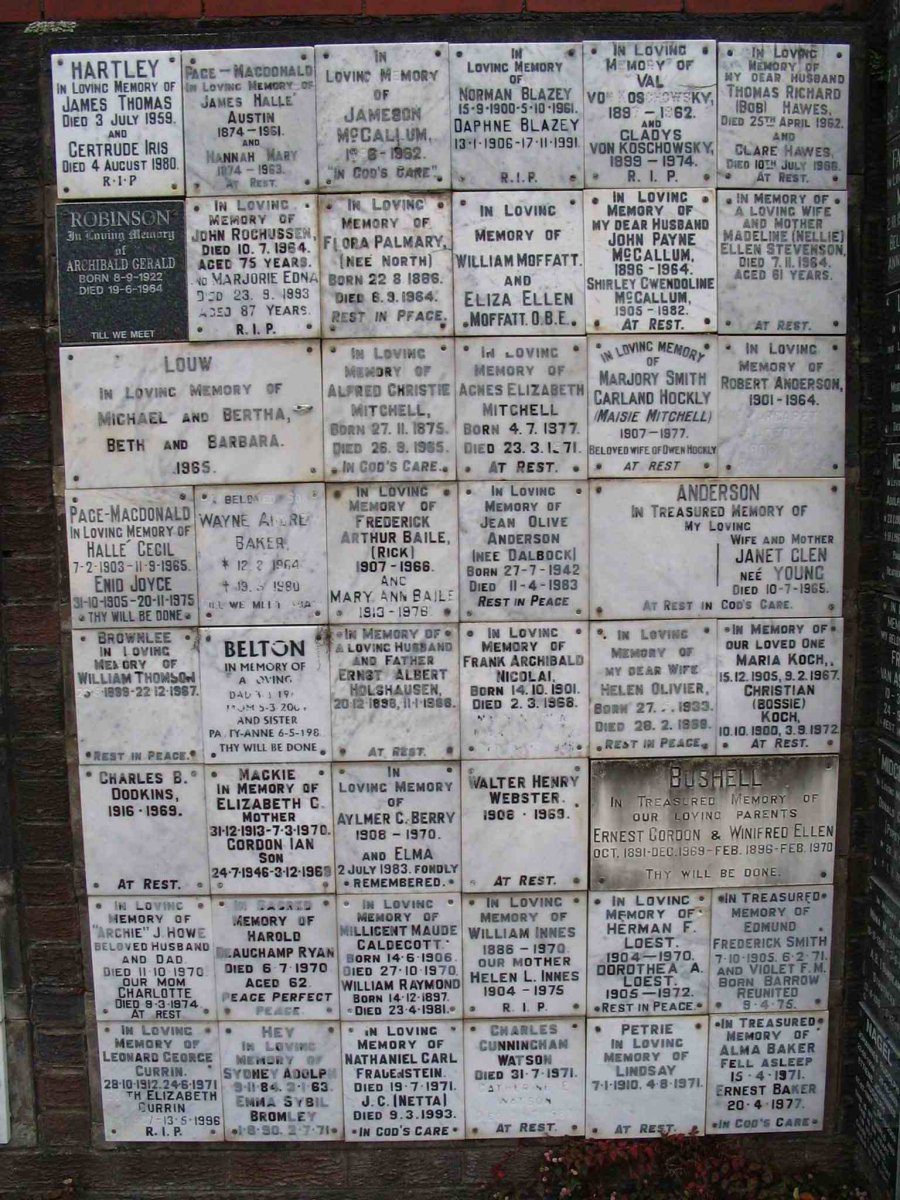 HARTLEY
IN LOVING MEMORY OF
JAMES THOMAS
DIED 3 JULY 1959.
AND
GERTRUDE IRIS
DIED 4 AUGUST 1980.
R.I.P
PAGE-MACDONALD
IN LOVING MEMORY OF
JAMES HALLE'
AUSTIN
1874-1961.
AND
HANNAH MARY
1874-1963.
AT REST.
IN
LOVING MEMORY
OF
JAMESON
McCALLUM,
1962.
"IN GOD'S CARE".
IN
LOVING MEMORY
OF
NORMAN BLAZEY
15-9-1900-5-10-1961.
DAPHNE BLAZEY
13-1-1906-17-11-1991.
R.I.P.
IN LOVING
MEMORY OF
VAL
1962.
AND
GLADYS
VON KOSCHOWSKY,
1899-1974.
R.I.P.
IN LOVING
MEMORY OF
MY DEAR HUSBAND
THOMAS RICHARD
(BOB) HAWES,
DIED 25TH APRIL 1962.
AND
CLARE HAWES,
DIED 10TH JULY
AT REST.
ROBINSON
In Loving Memory
of
ARCHIBALD GERALD
BORN 8-9-1922
DIED 19-6-1964
TILL WE MEET
IN LOVING
MEMORY OF
JOHN ROCHUSSEN,
DIED 10.7.1964.
AGED 75 YEARS.
MARJORIE EDNA
DIED 23.9.1993
AGED 87 YEARS.
R.I.P.
IN LOVING
MEMORY OF
FLORA PALMARY,
(NEE NORTH)
BORN 22 8 1886.
DIED 6.9.1964.
REST IN PEACE.
IN LOVING
MEMORY OF
WILLIAM MOFFATT.
AND
ELIZA ELLEN
MOFFATT.O.B.E.
IN LOVING
MEMORY OF
MY DEAR HUSBAND
JOHN PAYNE
McCALLUM.
1896-1964.
SHIRLEY GWENDOLINE
McCALLUM.
1905-1982.
AT REST.
IN MEMORY OF
A LOVING WIFE
AND MOTHER
MADELINE (NELLIE)
ELLEN STEVENSON,
DIED 7.11.1964.
AGED 61 YEARS.
AT REST.
LOUW
IN LOVING MEMORY OF
MICHAEL AND BERTHA,
BETH AND BARBARA.
1965.
IN LOVING
MEMORY OF
ALFRED CHRISTIE
MITCHELL,
BORN 27.11.1875.
DIED 26.9.1965.
IN GOD'S CARE.
IN LOVING
MEMORY OF
AGNES ELIZABETH
MITCHELL
BORN 4.7.1877.
DIED 23.3.
AT REST.
IN LOVING MEMORY
OF
MARJORY SMITH
GARLAND HOCKLY
(MAISIE MITCHELL)
1907-1977.
BELOVED WIFE OF OWEN HOCKLY
AT REST
IN LOVING
MEMORY OF
ROBERT ANDERSON,
1901-1964.
PAGE-MACDONALD
IN LOVING MEMORY OF
HALLE' CECIL
7-2-1903-11-9-1965.
ENID JOYCE
31-10-1905-20-11-1975
THY WILL BE DONE
WAYNE
BAKER.
1980
IN LOVING
MEMORY OF
FREDERICK
ARTHUR BAILE,
(RICK)
1907-1966.
AND
MARY ANN BAILE
1913-1976
IN LOVING
MEMORY OF
JEAN OLIVE
ANDERSON
(NEE DALBOCK)
BORN 27-7-1942
DIED 11-4-1983
REST IN PEACE
ANDERSON
IN TREASURED MEMORY OF
MY LOVING
WIFE AND MOTHER
JANET GLEN
NEÉ YOUNG
DIED 10-7-1965.
AT REST IN GOD'S CARE.
BROWNLEE
IN LOVING
MEMORY OF
WILLIAM THOMSON
1899-22-12-1967.
REST IN PEACE.
BELTON
IN MEMORY OF
A LOVING
DAD
MOM
AND SISTER
PATTY-ANNE 6-5-198
THY WILL BE DONE
IN MEMORY OF
A LOVING HUSBAND
AND FATHER
ERNST ALBERT
HOLSHAUSEN,
20-12-1898, 11-1-1968.
AT REST.
IN LOVING
MEMORY OF
FRANK ARCHIBALD
NICOLAI,
BORN 14.10.1901.
DIED 2.3.1968.
IN LOVING
MEMORY OF
MY DEAR WIFE
HELEN OLIVIER,
BORN 27. 1933.
DIED 28.2.
REST IN PEACE.
IN MEMORY OF
OUR LOVED ONE
MARIA KOCH,
15.12.1905, 9.2.1967.
CHRISTIAN
(BOSSIE)
KOCH,
10.10.1900, 3.9.1972.
AT REST.
CHARLES B.
DODKINS,
1916-1969.
AT REST.
MACKIE
IN MEMORY OF
ELIZABETH C.
MOTHER
31-12-1913-7-3-1970.
GORDON IAN
SON
24-7-1946-3-12-1969
IN
LOVING MEMORY
OF
AYLMER C. BERRY
1908-1970.
AND ELMA
2 JULY 1983. FONDLY
REMEMBERED.
WALTER HENRY
WEBSTER.
1908-1969.
AT REST.
BUSHELL
IN TREASURED MEMORY OF
OUR LOVING PARENTS
ERNEST GORDON & WINIFRED ELLEN
OCT. 1891-DEC. 1969-FEB. 1896-FEB. 1970
THY WILL BE DONE.
IN LOVING
MEMORY OF
"ARCHIE" J. HOWE
BELOVED HUSBAND
AND DAD.
DIED 11-10 1970
OUR MOM
CHARLOTTE
DIED 9-3-1974
AT REST
IN SACRED
MEMORY OF
HAROLD
BEAUCHAMP RYAN
DIED 6-7-1970
AGED 62.
PEACE PERFECT
PEACE.
IN LOVING
MEMORY OF
MILLICENT MAUDE
CALDECOTT.
BORN 14-6-1906.
DIED 27-10-1970.
WILLIAM RAYMOND
BORN 14-12-1897.
DIED 23-4-1981.
IN LOVING
MEMORY OF
WILLIAM INNES
1886-1970.
OUR MOTHER
HELEN L. INNES
1904-1975
R.I.P.
IN LOVING
MEMORY OF
HERMAN F.
LOEST.
1904-1970.
DOROTHEA A.
LOEST.
1905-1972.
REST IN PEACE.
IN TREASURED
MEMORY OF
EDMUND
FREDERICK SMITH
7-10-1905. 6-2-71.
AND VIOLET F.M.
BORN BARROW
REUNITED
9-4-75.
IN LOVING
MEMORY OF
LEONARD GEORGE
CURRIN.
28-10-1912. 24-6-1971
ELIZABETH
CURRIN
13-5-1996
R.I.P.
HEY
IN LOVING
MEMORY OF
SYDNEY ADOLPH
9-11-84. 3-1-63.
EMMA SYBIL
BROMLEY
1-8-90. 2-7-71
IN LOVING
MEMORY OF
NATHANIEL CARL
FRAUENSTEIN.
DIED 19.7.1971.
J.C. (NETTA)
DIED 9.3.1993.
IN GOD'S CARE
CHARLES
CUNNINGHAM
WATSON
DIED 31-7-1971.
WATSON
AT REST.
PETRIE
IN LOVING
MEMORY OF
LINDSAY
7-1-1910. 4-8-1971.
AT REST.
IN TREASURED
MEMORY OF
ALMA BAKER
FELL ASLEEP
15-4-1971.
ERNEST BAKER
20-4-1977.
IN GOD'S CARE